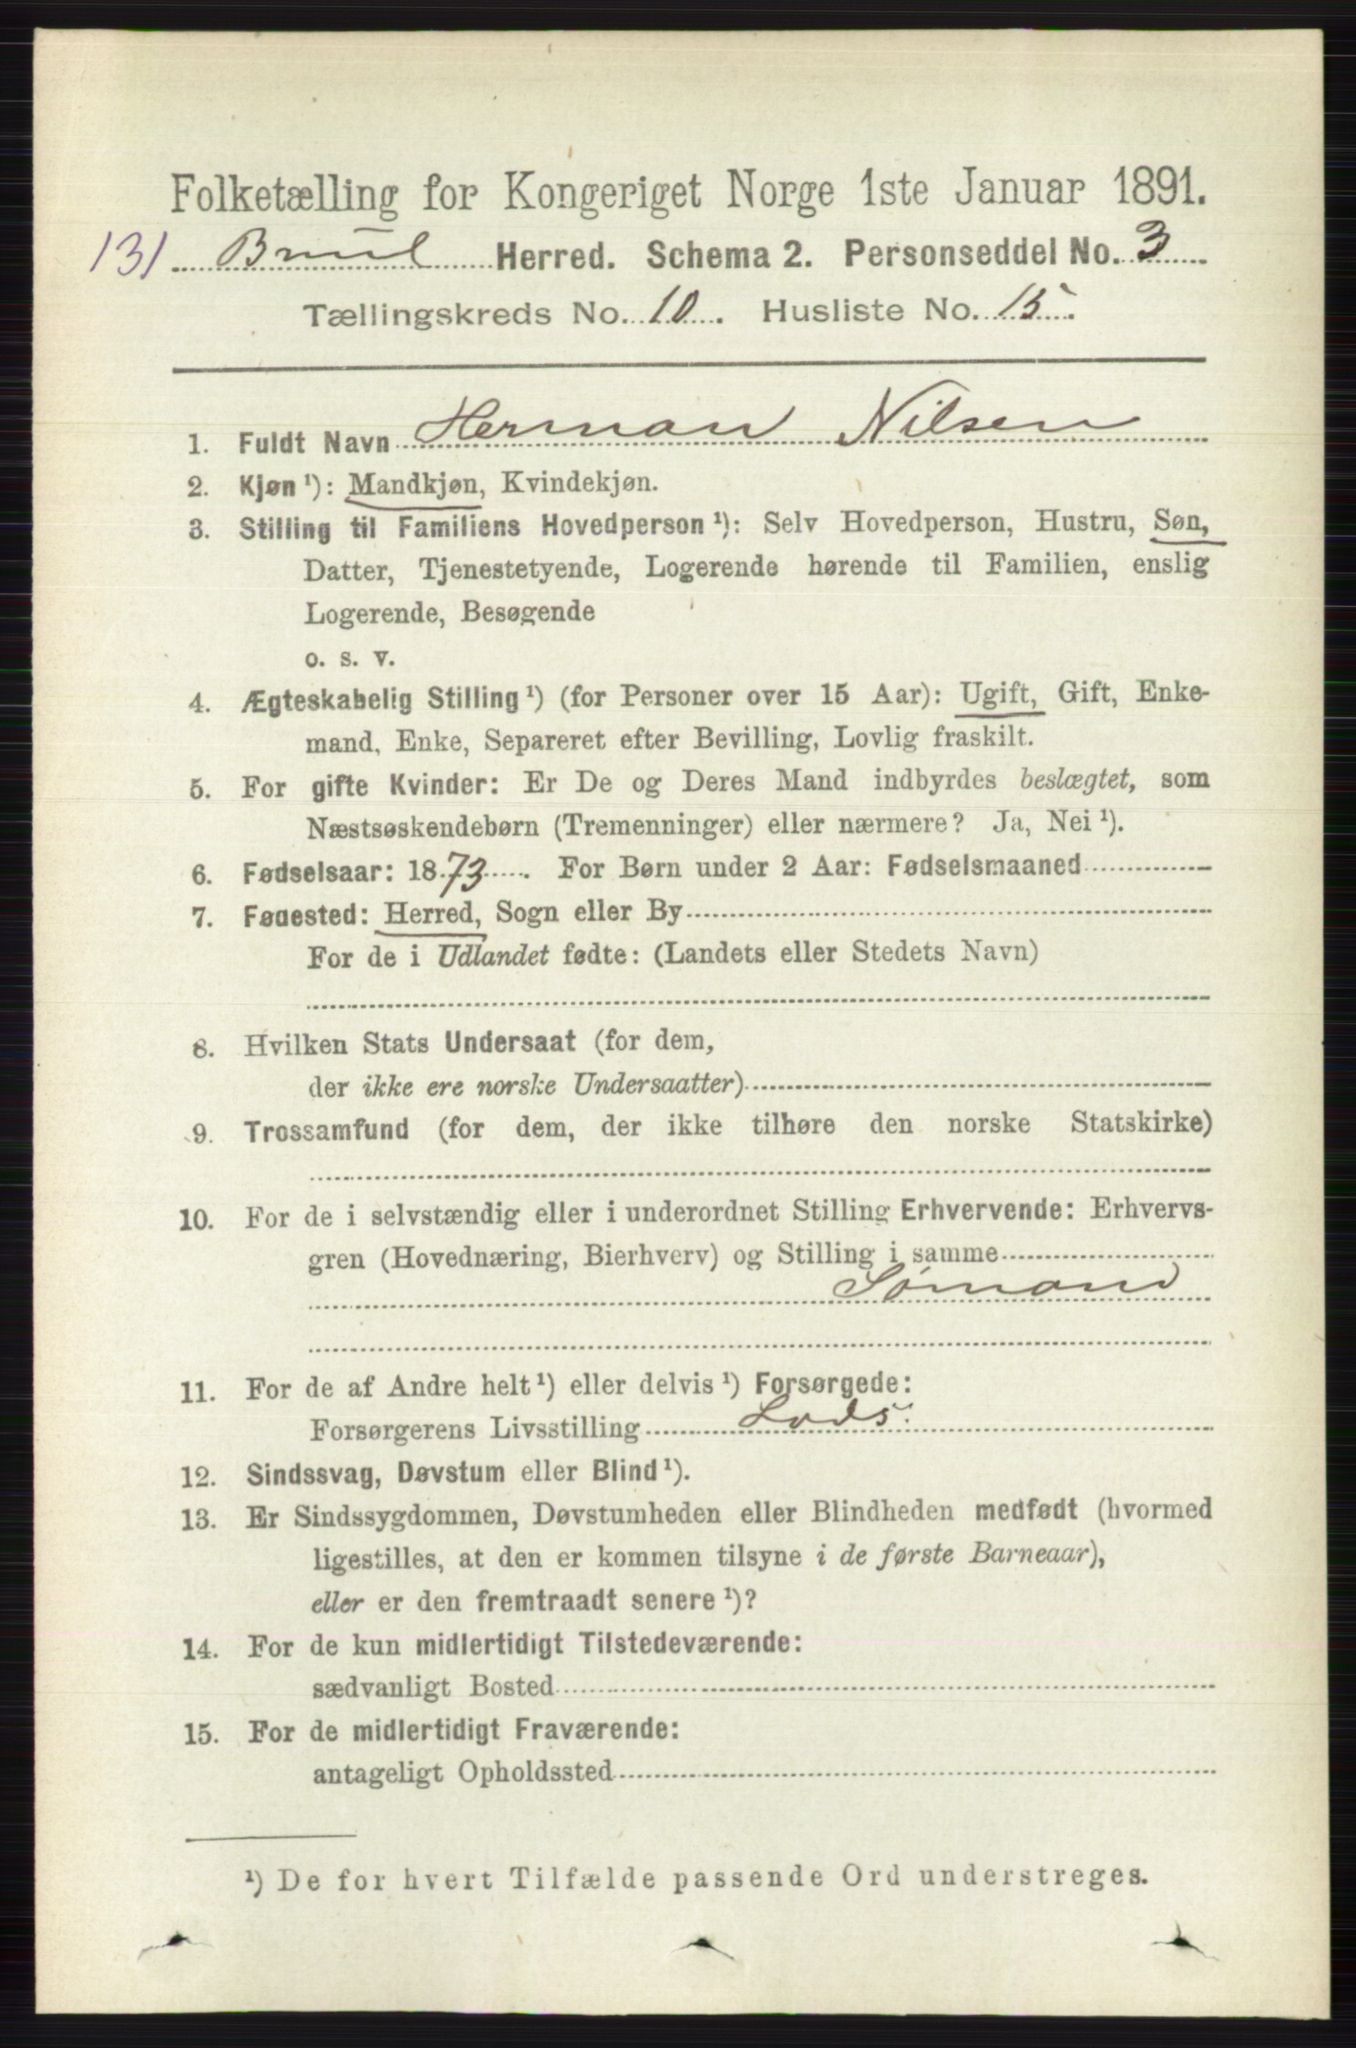 Folketælling for Kongeriget Norge 1ste Januar 1891.
131 Herred. Schema 2. Personseddel No. 3
Tællingskreds No. 10. Husliste No. 15.
1. Fuldt Navn Herman Nilsen
2. Kjøn ¹): Mandkjøn, Kvindekjøn.
3. Stilling til Familiens Hovedperson ¹): Selv Hovedperson, Hustru, Søn,
Datter, Tjenestetyende, Logerende hørende til Familien, enslig
Logerende, Besøgende
o. s. v.
4. Ægteskabelig Stilling ¹) (for Personer over 15 Aar): Ugift, Gift, Enke-
mand, Enke, Separeret efter Bevilling, Lovlig fraskilt.
5. For gifte Kvinder: Er De og Deres Mand indbyrdes beslægtet, som
Næstsøskendebørn (Tremenninger) eller nærmere? Ja, Nei ¹).
6. Fødselsaar: 1873. For Børn under 2 Aar: Fødselsmaaned
7. Fødested: Herred, Sogn eller By
For de i Udlandet fødte: (Landets eller Stedets Navn)
8. Hvilken Stats Undersaat (for dem,
der ikke ere norske Undersaatter)
9. Trossamfund (for dem, der ikke tilhøre den norske Statskirke)
10. For de i selvstændig eller i underordnet Stilling Erhvervende: Erhvervs-
gren (Hovednæring, Bierhverv) og Stilling i samme
Sømand
11. For de af Andre helt ¹) eller delvis ¹) Forsørgede:
Forsørgerens Livsstilling Lods.
12. Sindssvag, Døvstum eller Blind ¹).
13. Er Sindssygdommen, Døvstumheden eller Blindheden medfødt (hvormed
ligestilles, at den er kommen tilsyne i de første Barneaar),
eller er den fremtraadt senere ¹)?
14. For de kun midlertidigt Tilstedeværende:
sædvanligt Bosted
15. For de midlertidigt Fraværende:
antageligt Opholdssted
¹) De for hvert Tilfælde passende Ord understreges.